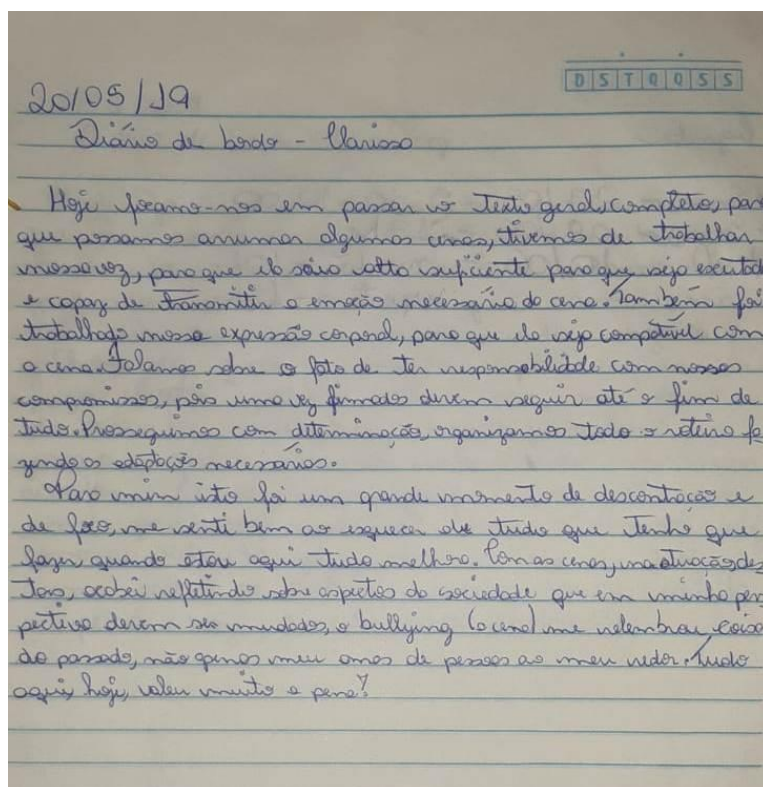 D S T Q Q S S
20/05/19
Diário de bordo - Clarissa
Hoje focamo-nos em passar o texto geral, completo, para
que possamos arrumar algumas cenas, tivemos de trabalhar
nossa voz, para que ela saia alta suficiente para que seja escutada
e capaz de transmitir a emoção necessária da cena. Também foi
trabalhado nossa expressão corporal, para que ela seja compatível com
a cena. Falamos sobre o fato de ter responsabilidade com nossos
compromissos, pois uma vez firmados devem seguir até o fim de
tudo. Prosseguimos com determinação, organizamos todo o roteiro fa
zendo as adaptações necessárias.
Para mim isto foi um grande momento de descontração e
de foco, me senti bem ao esquecer de tudo que tenho que
fazer, quando estou aqui tudo melhora. Com as cenas, na atuação des
tas, acabei refletindo sobre aspectos da sociedade que em minha pers
pectiva devem ser mudados, o bullying (a cena) me relembrou coisa
do passado, não apenas meu mas de pessoas ao meu redor. Tudo
aqui, hoje, valeu muito a pena!